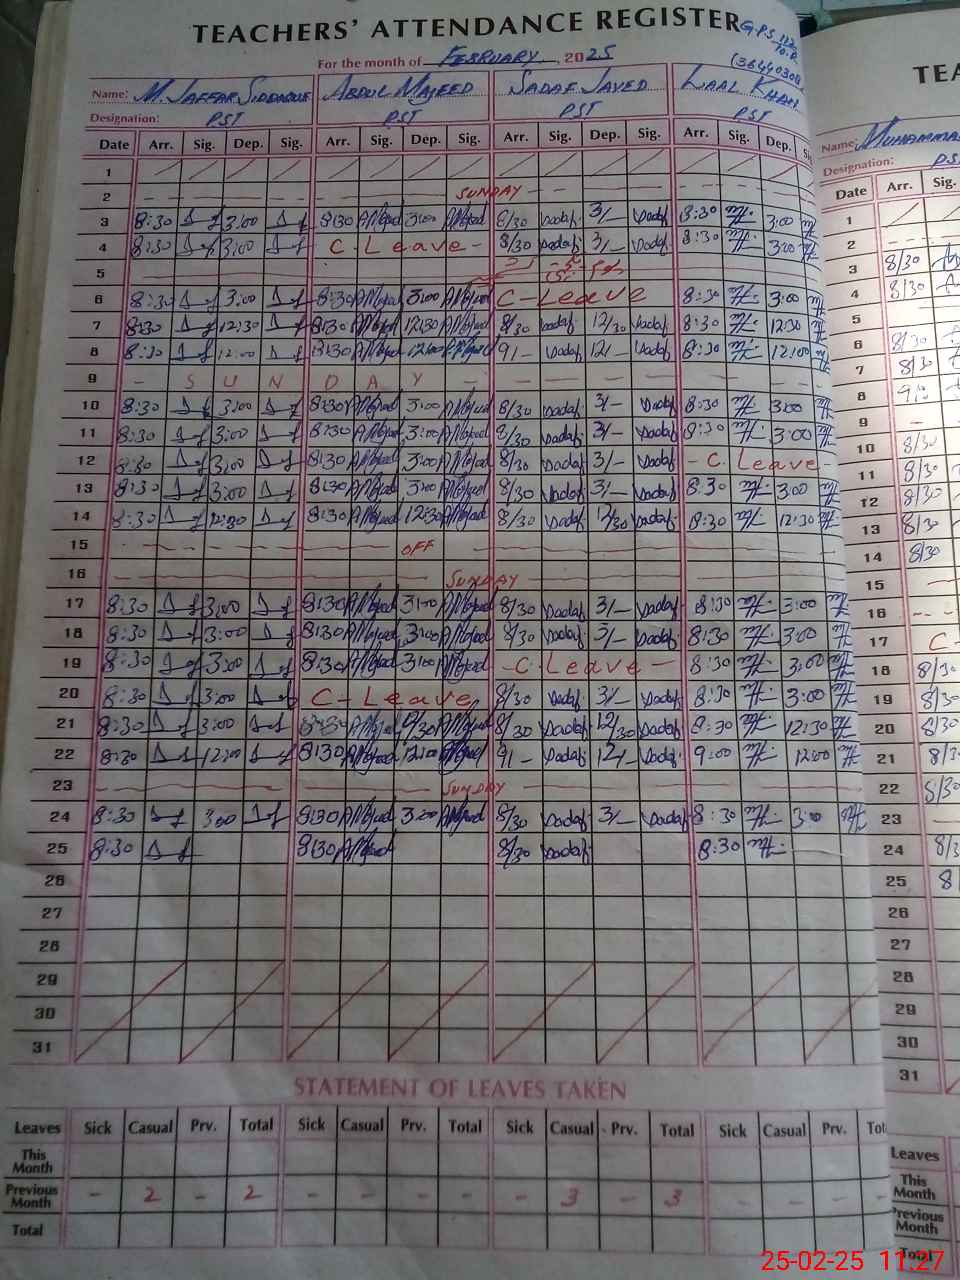 TEACHERS' ATTENDANCE REGISTER G.P.S 112
For the month of FEBRUARY, 2025 (36440304
Name: M. JAFFAR SIDDIQUE ABDUL MAJEED SADAF JAVED LAAL KHAN
Designation: PST PST PST PST
Date Arr. Sig. Dep. Sig. Arr. Sig. Dep. Sig. Arr. Sig. Dep. Sig. Arr. Sig. Dep.
1
2 SUNDAY
3 8:30 3:00 8:30 AMajeed 3:00 AMajeed 8/30 Sadaf 3/- Sadaf 8:30 3:00
4 8:30 3:00 C. Leave - 8/30 Sadaf 3/- Sadaf 8:30 3:00
5
6 8:30 3:00 8:30 AMajeed 3:00 AMajeed C-Leave 8:30 3:00
7 8:30 12:30 8:30 AMajeed 12:30 AMajeed 8/30 Sadaf 12/30 Sadaf 8:30 12:30
8 8:30 12:00 8:30 AMajeed 12:00 AMajeed 9/- Sadaf 12/- Sadaf 8:30 12:00
9 - SUNDAY -
10 8:30 3:00 8:30 AMajeed 3:00 AMajeed 8/30 Sadaf 3/- Sadaf 8:30 3:00
11 8:30 3:00 8:30 AMajeed 3:00 AMajeed 8/30 Sadaf 3/- Sadaf 8:30 3:00
12 8:30 3:00 8:30 AMajeed 3:00 AMajeed 8/30 Sadaf 3/- Sadaf - C. Leave -
13 8:30 3:00 8:30 AMajeed 3:00 AMajeed 8/30 Sadaf 3/- Sadaf 8:30 3:00
14 8:30 12:30 8:30 AMajeed 12:30 AMajeed 8/30 Sadaf 12/30 Sadaf 8:30 12:30
15 OFF
16 SUNDAY
17 8:30 3:00 8:30 AMajeed 3:00 AMajeed 8/30 Sadaf 3/- Sadaf 8:30 3:00
18 8:30 3:00 8:30 AMajeed 3:00 AMajeed 8/30 Sadaf 3/- Sadaf 8:30 3:00
19 8:30 3:00 8:30 AMajeed 3:00 AMajeed - C Leave - 8:30 3:00
20 8:30 3:00 C-Leave 8/30 Sadaf 3/- Sadaf 8:30 3:00
21 8:30 3:00 8:30 AMajeed 12/30 AMajeed 8/30 Sadaf 12/30 Sadaf 8:30 12:30
22 8:30 12:00 8:30 AMajeed 12:00 AMajeed 9/- Sadaf 12/- Sadaf 9:00 12:00
23 SUNDAY
24 8:30 3:00 8:30 AMajeed 3:00 AMajeed 8/30 Sadaf 3/- Sadaf 8:30 3:00
25 8:30 8:30 AMajeed 8/30 Sadaf 8:30
26
27
28
29
30
31
STATEMENT OF LEAVES TAKEN
Leaves Sick Casual Prv. Total Sick Casual Prv. Total Sick Casual Prv. Total Sick Casual Prv.
This Month
Previous Month - 2 - 2 - - - - - 3 - 3 - - - -
Total
TEA
Name: MUHAMMAD
Designation: PS
Date Arr. Sig.
1
2
3 8/30
4 8/30
5
6 8/30
7 8/30
8 9/-
9 -
10 8/30
11 8/30
12 8/30
13 8/30
14 8/30
15
16
17 C-
18 8/30
19 8/30
20 8/30
21 8/3
22 8/30
23
24 8/3
25 8
26
27
28
29
30
31
Leaves
This Month
Previous Month
Total
25-02-25 11:27